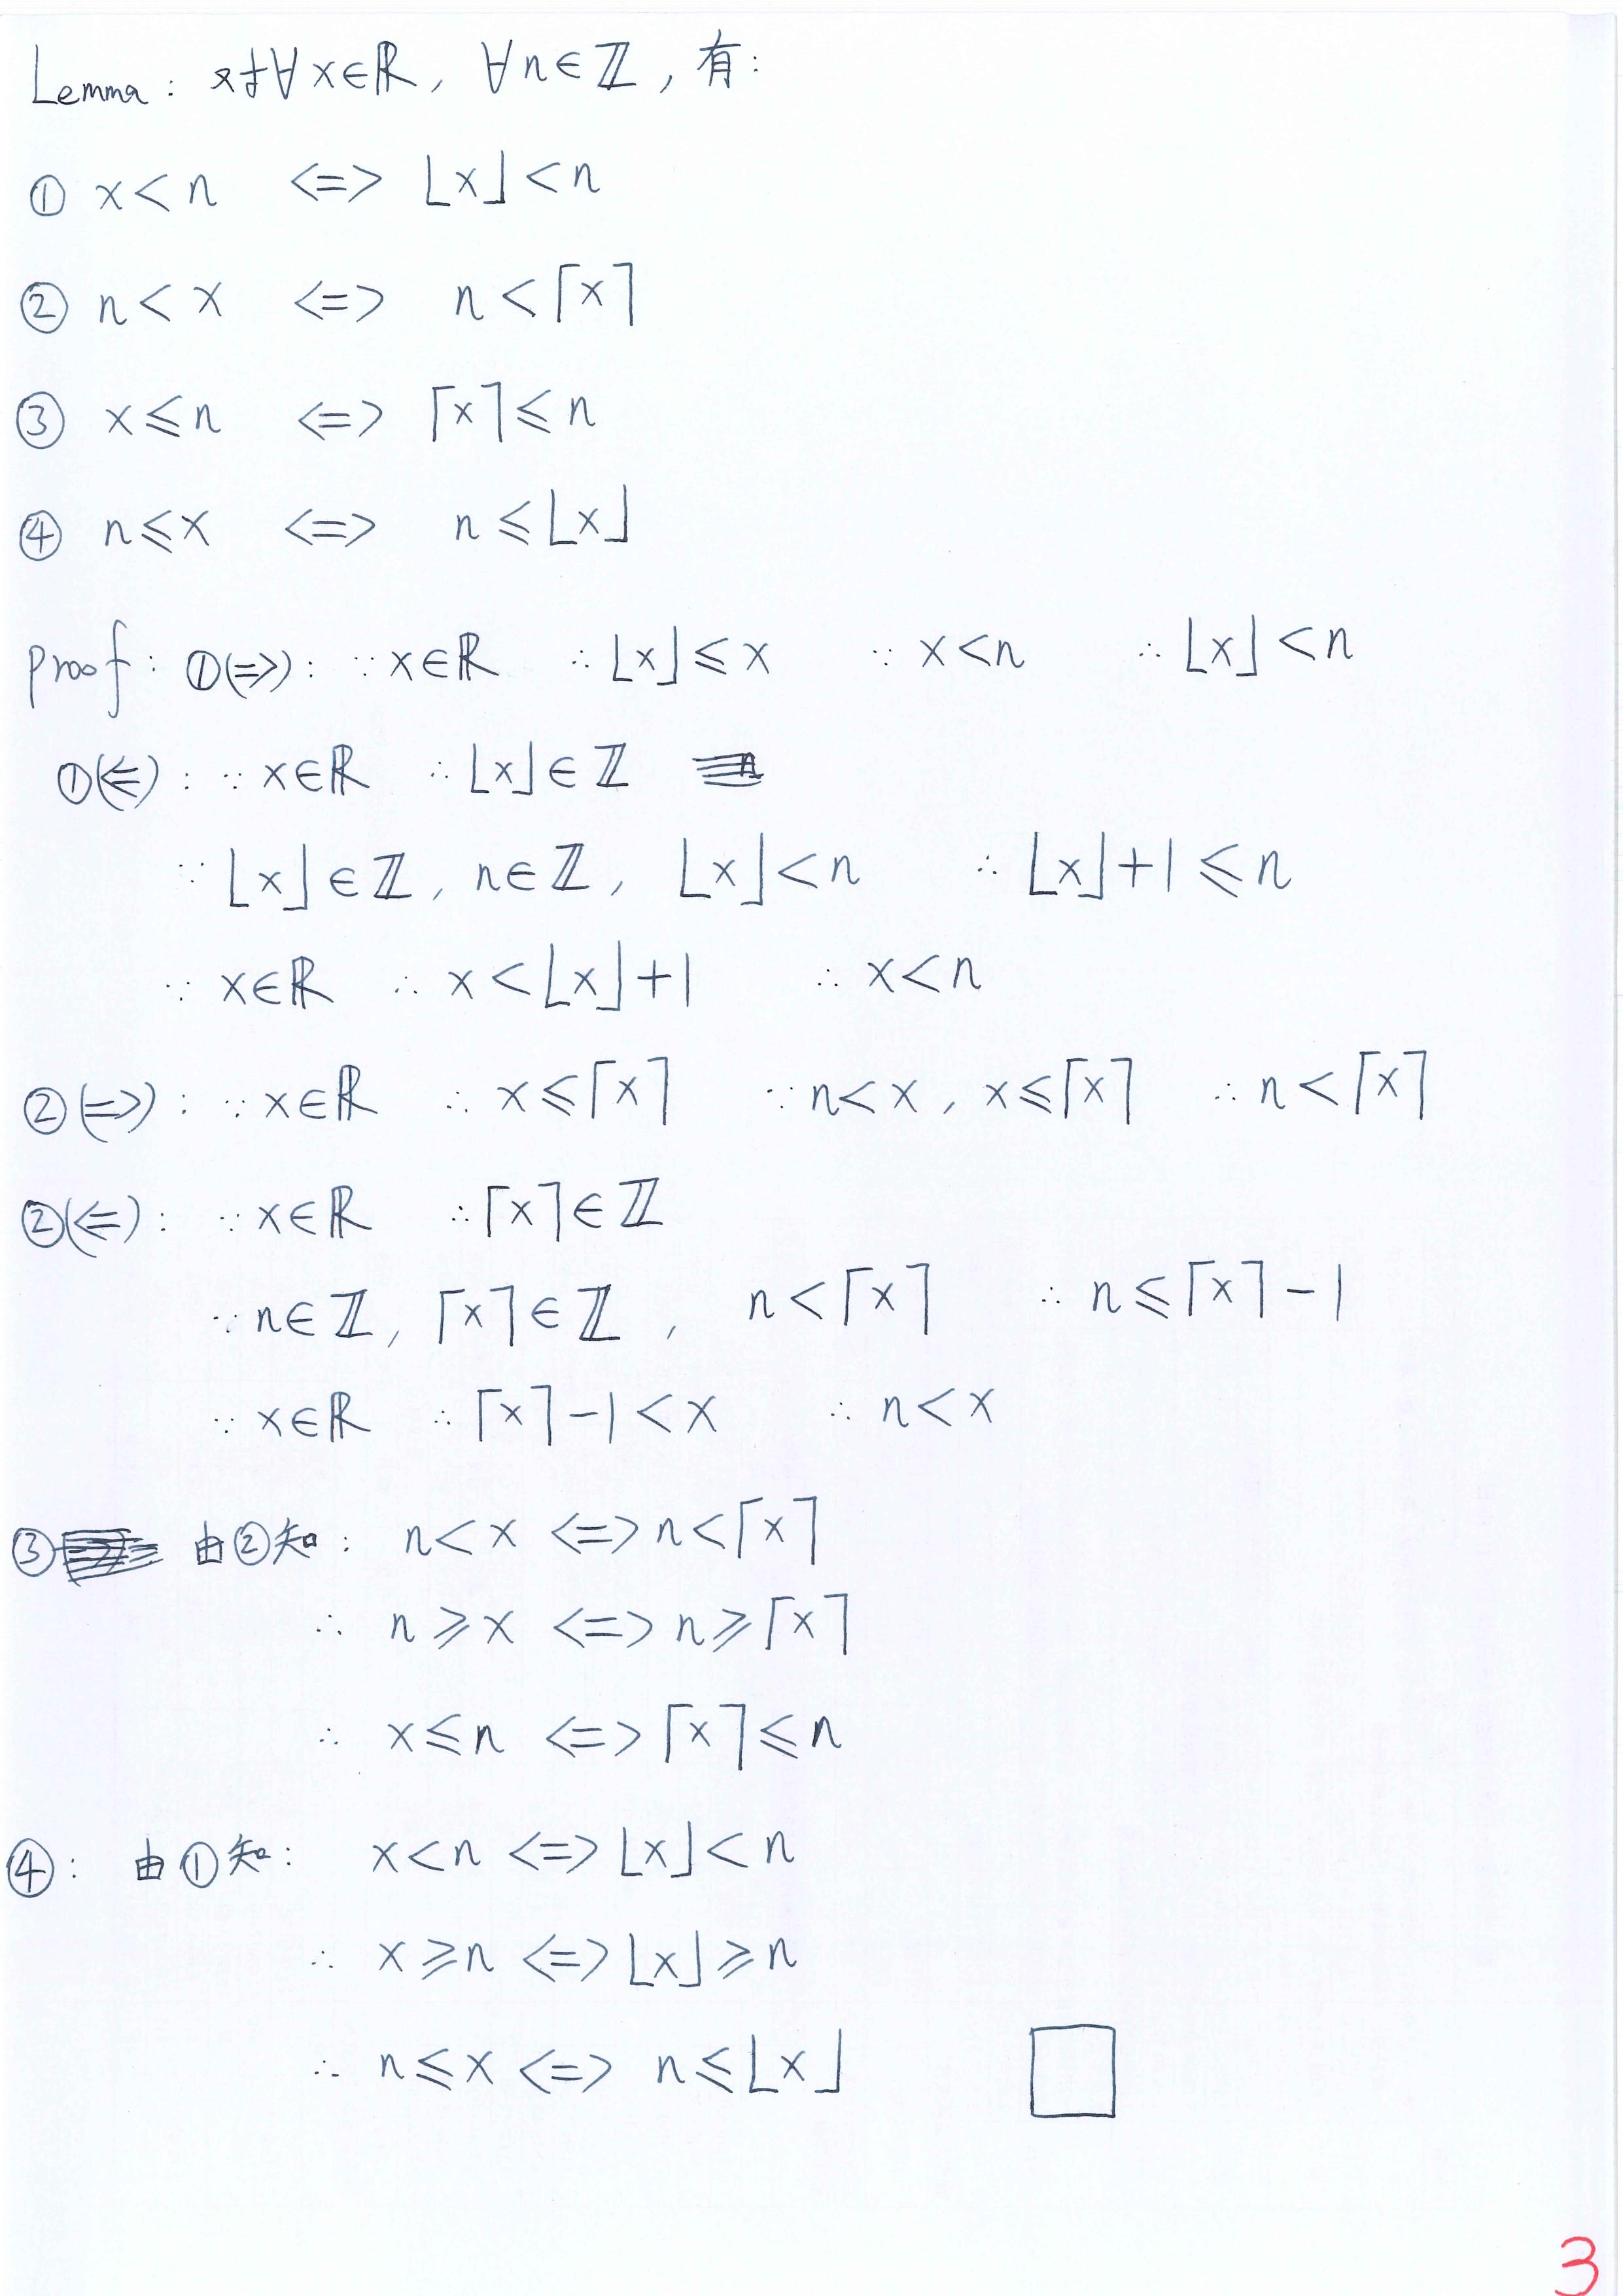 Lemma: 对∀x∈ℝ, ∀n∈ℤ, 有:
① x<n <=> ⌊x⌋<n
② n<x <=> n<⌈x⌉
③ x⩽n <=> ⌈x⌉⩽n
④ n⩽x <=> n⩽⌊x⌋
proof: ①(=>): ∵x∈ℝ ∴⌊x⌋⩽x ∵x<n ∴⌊x⌋<n
①(<=): ∵x∈ℝ ∴⌊x⌋∈ℤ
∵⌊x⌋∈ℤ, n∈ℤ, ⌊x⌋<n ∴⌊x⌋+1⩽n
∵x∈ℝ ∴x<⌊x⌋+1 ∴x<n
②(=>): ∵x∈ℝ ∴x⩽⌈x⌉ ∵n<x, x⩽⌈x⌉ ∴n<⌈x⌉
②(<=): ∵x∈ℝ ∴⌈x⌉∈ℤ
∵n∈ℤ, ⌈x⌉∈ℤ, n<⌈x⌉ ∴n⩽⌈x⌉-1
∵x∈ℝ ∴⌈x⌉-1<x ∴n<x
③ 由②知: n<x <=> n<⌈x⌉
∴ n⩾x <=> n⩾⌈x⌉
∴ x⩽n <=> ⌈x⌉⩽n
④: 由①知: x<n <=> ⌊x⌋<n
∴ x⩾n <=> ⌊x⌋⩾n
∴ n⩽x <=> n⩽⌊x⌋ □
3